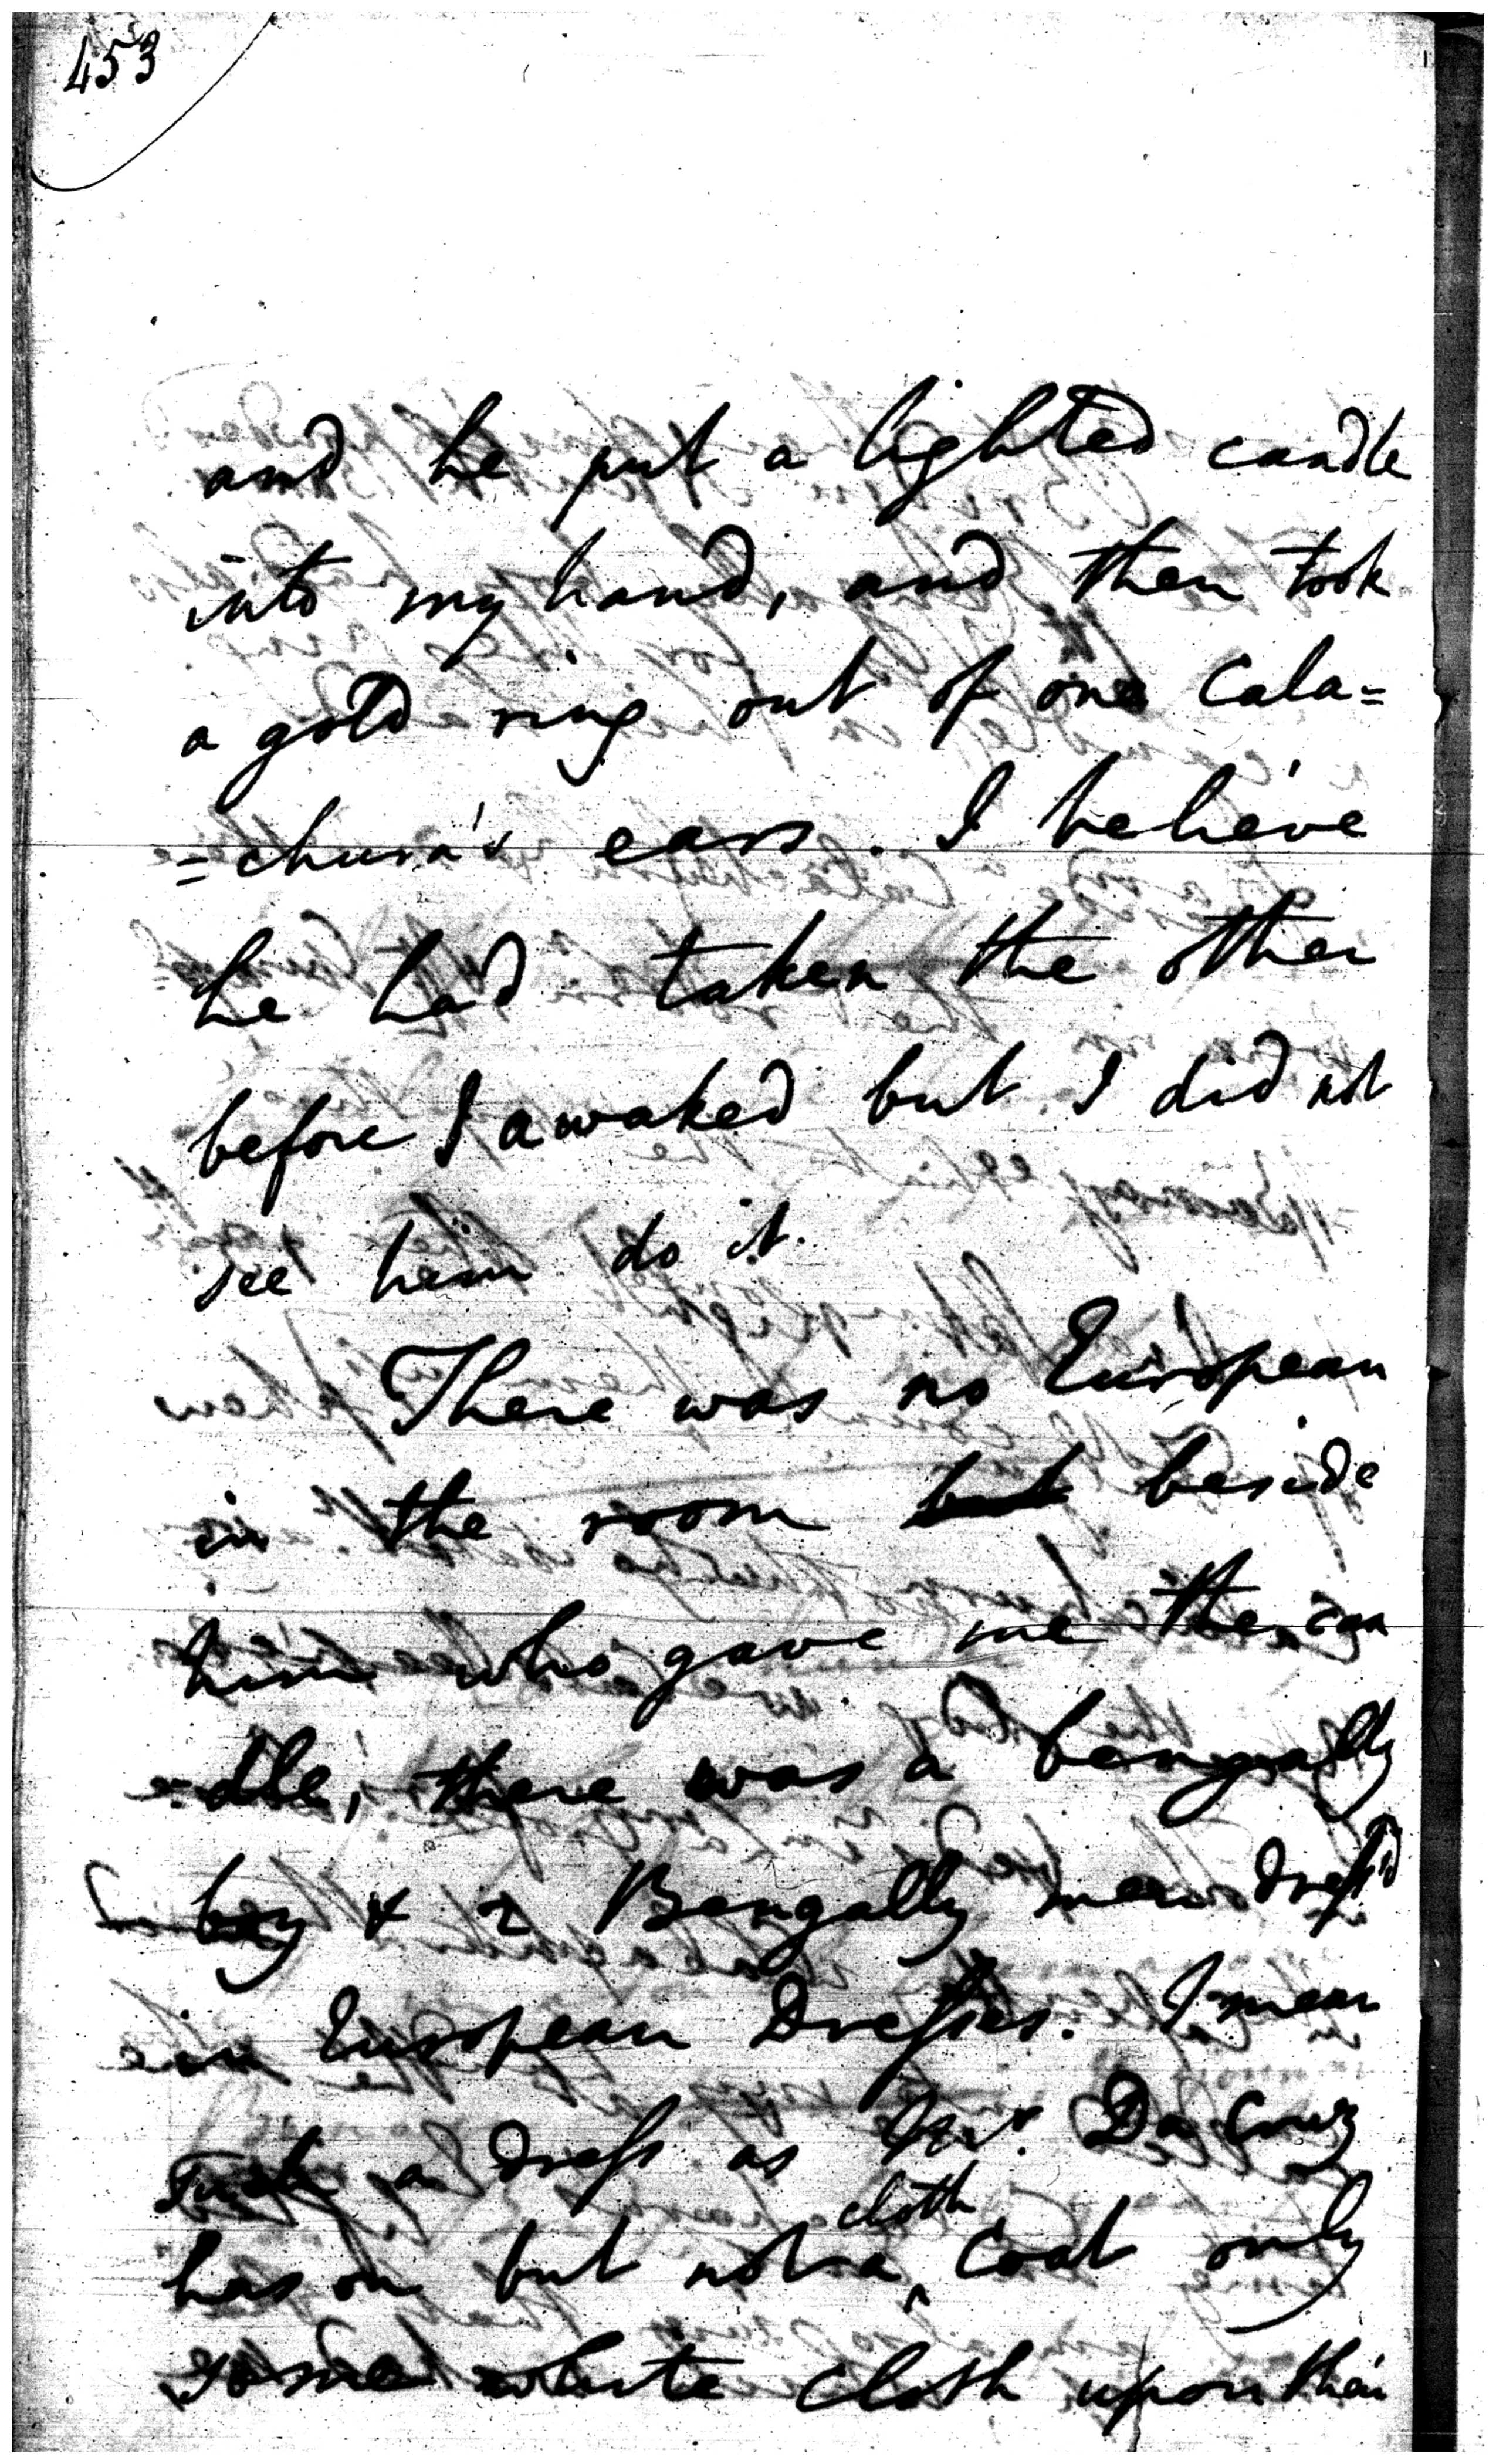 453
and he put a lighted candle
into my hand, and then took
a gold ring out of one Cala=
=chura's ears. I believe
he had taken the other
before I awaked but I did not
see him do it.
There was no European
in the room but beside
him who gave me the can
=dle, there was a bengally
boy & 2 Bengally men dress'd
in European Dresses. I mean
such a dress as Mr. Da Cruz
has on but not a cloth Coat only
some white cloth upon their